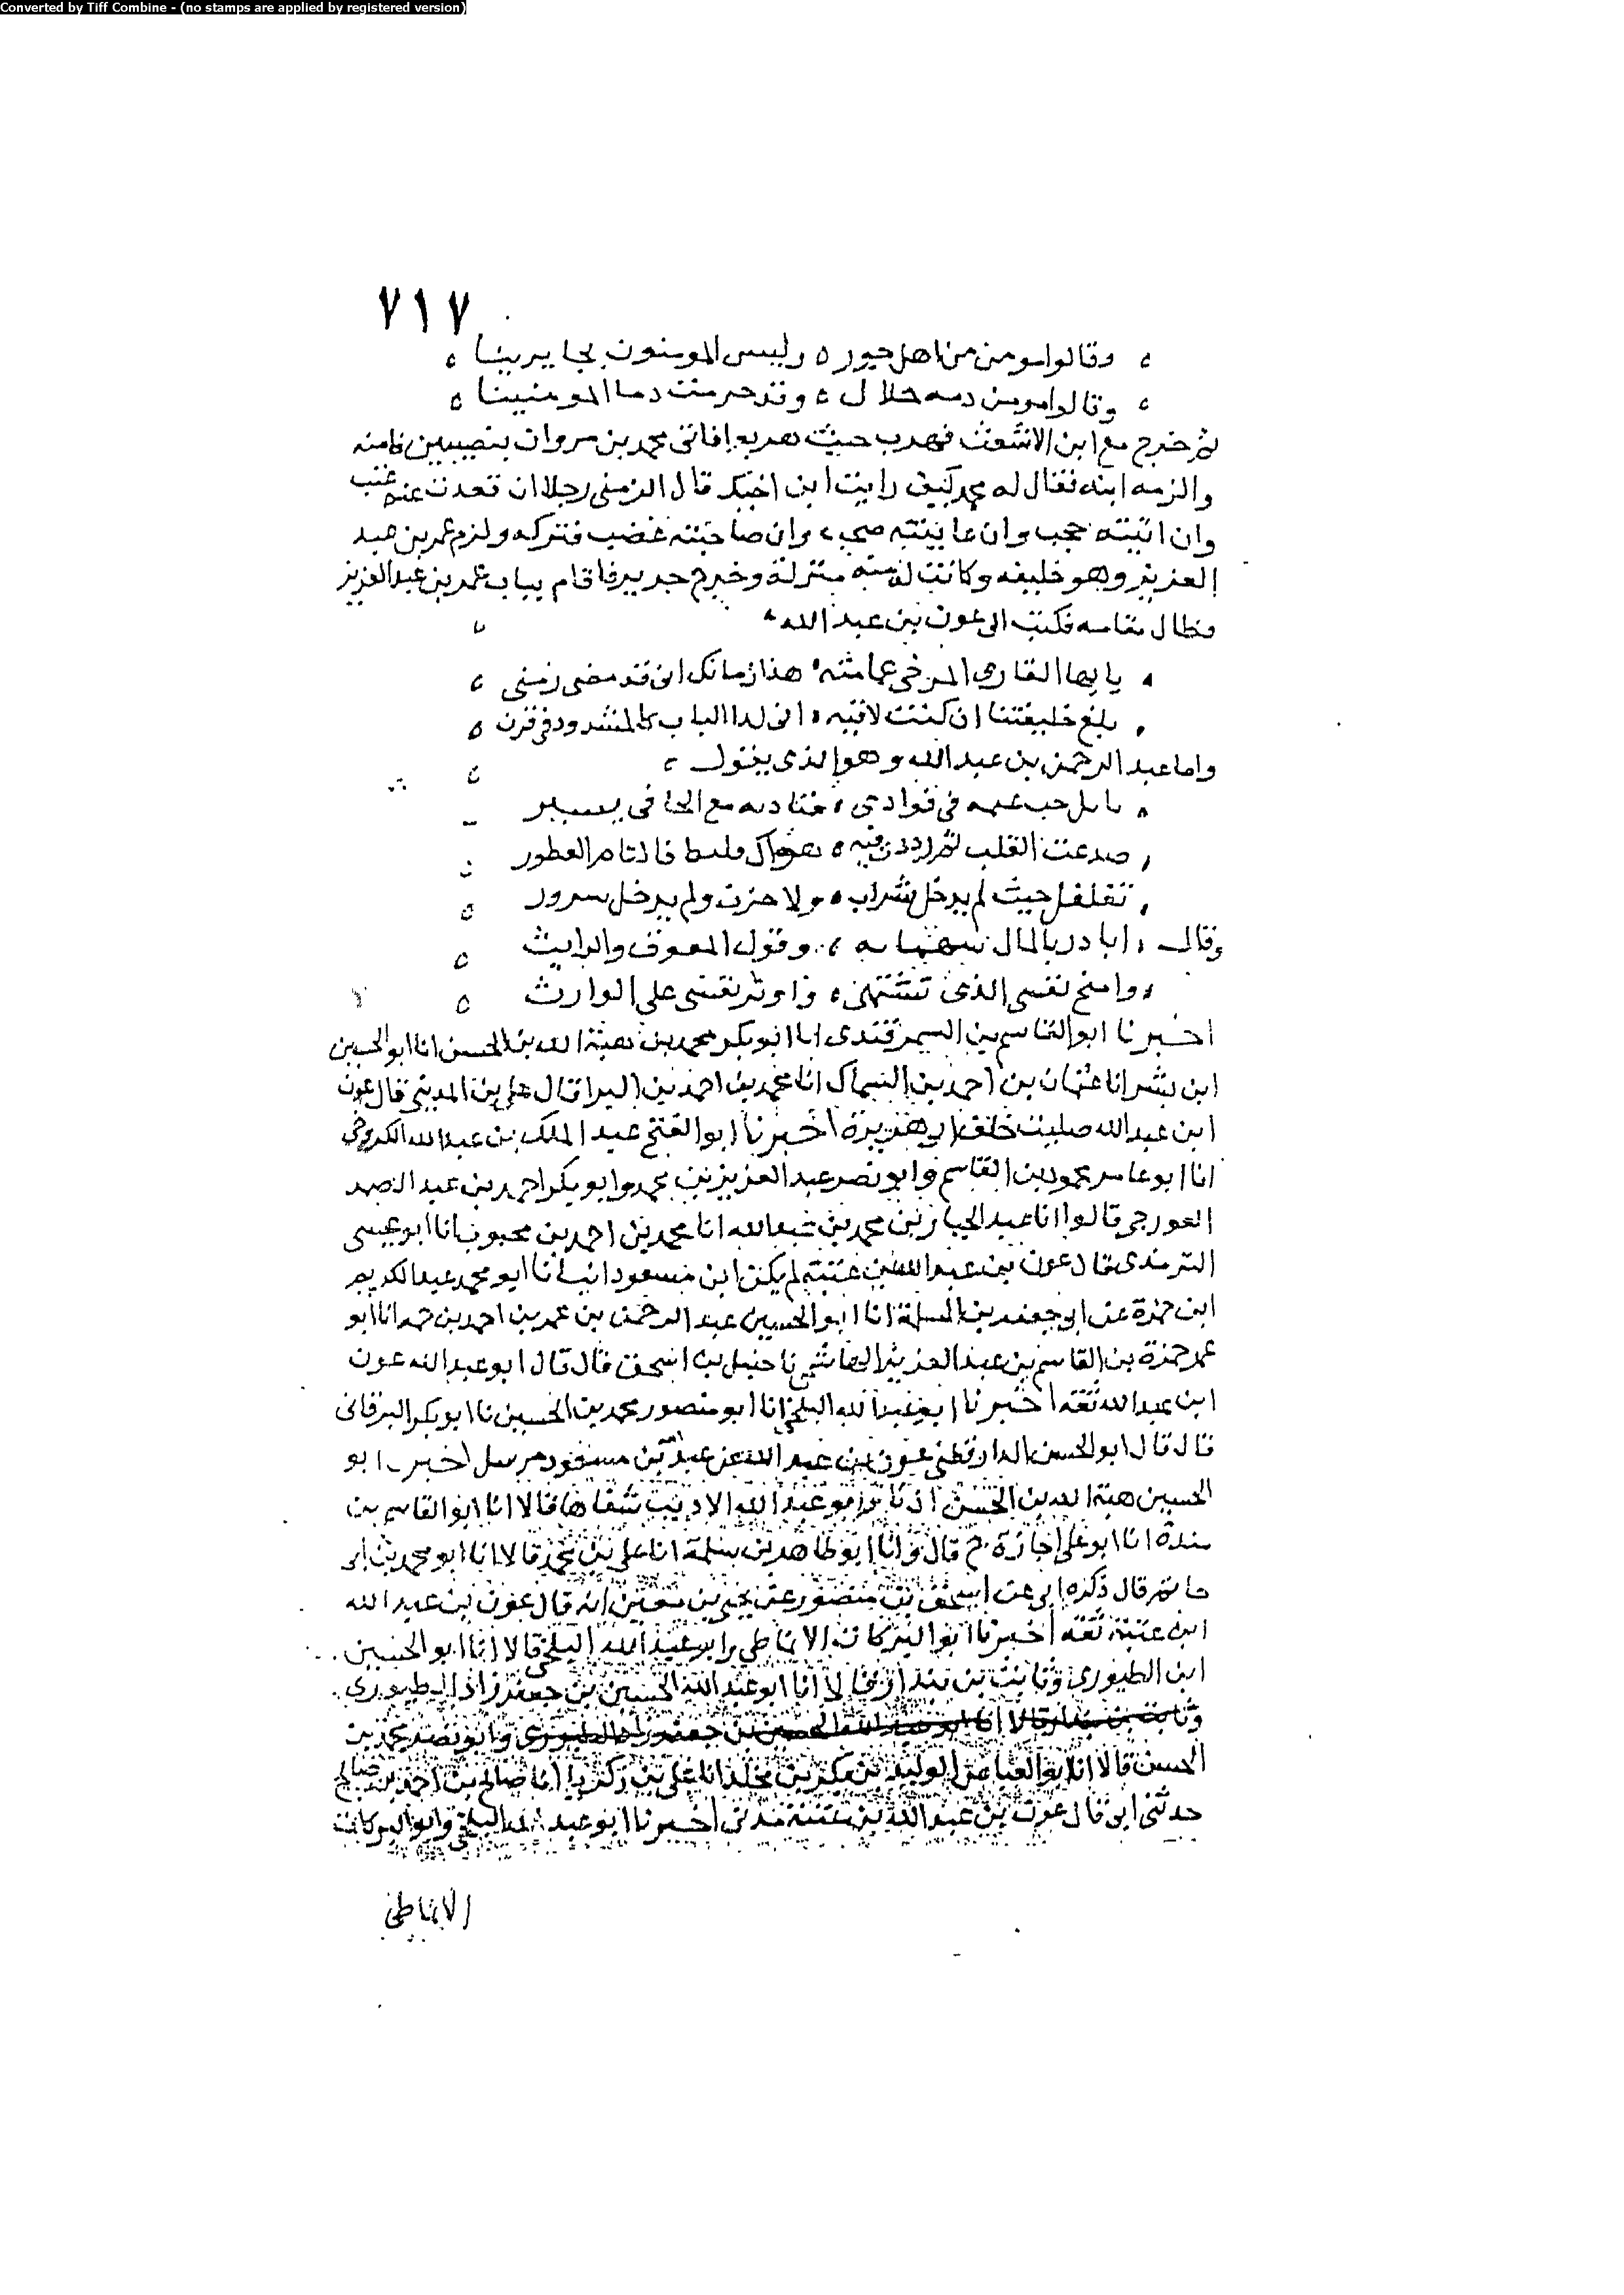 Converted by Tiff Combine - (no stamps are applied by registered version)
٧١٧
وقالوا مومن من اهل جور ه وليس المومنون بجايرينا ه
وقالوا مومن دمه حلال ه وقد حرمت دما المومنينا ه
ثم خرج مع ابن الاشعث فهرب حيث هربوا فاتى محمد بن مروان بنصيبين فامنه
والزمه ابنه فقال له محمد كيف رايت ابن اخيك قال الزمنى رجلا ان قعدت عنه عتب
وان اتيته حجب وان عاتبته صخب وان صاحبته غضب فتركه ولزم عمر بن عبد
العزيز وهو خليفه وكانت له منه منزلة وخرج جرير فاقام بباب عمر بن عبد العزيز
فطال مقامه فكتب الى عون بن عبد الله
يايها القارى المرخى عمامته هذا زمانك انى قد مضى زمنى
بلغ خليفتنا ان كنت لاقيه انى لدا الباب كالمشدود فى قرن
واما عبد الرحمن بن عبد الله وهو الذى يقول
حب عثمه فى فوادى مع الخافى يسير
صدعت القلب ثم ذررت فيه هواك فليط فالتام الفطور
تغلغل حيث لم يدخل شراب ولا حزن ولم يدخل سرور
وقال ابادر بالمال وقول المعوق والرايث
وامنح نفسى الذى تشتهى واوثر نفسى على الوارث
اخبرنا ابو القاسم بن السمرقندى انا ابو بكر محمد بن هبة الله بن الحسن انا ابو الحسين
ابن بشران انا عثمان بن احمد بن السماك انا محمد بن احمد بن البرا قال على بن المدينى قال عون
ابن عبد الله صليت خلف ابى هريرة اخبرنا ابو الفتح عبد الملك بن عبد الله الكروخى
انا ابو عامر محمود بن القاسم وابو نصر عبد العزيز بن محمد وابو بكر احمد بن عبد الصمد
الغورجى قالوا انا عبد الجبار بن محمد بن عبد الله انا محمد بن احمد بن محبوب انا ابو عيسى
الترمذى قال عون بن عبد الله بن عتبة لم يلق ابن مسعود انبانا ابو محمد عبد الكريم
ابن حمزة عن ابى جعفر بن المسلمة انا ابو الحسين عبد الرحمن بن عمر بن احمد بن حمه انا ابو
عمر حمزة بن القاسم بن عبد العزيز الهاشمى نا حنبل بن اسحق قال قال ابو عبد الله عون
ابن عبد الله ثقة اخبرنا ابو عبد الله البلخى انا ابو منصور محمد بن الحسين نا ابو بكر البرقانى
قال قال ابو الحسن الدارقطنى عون بن عبد الله عن عبد الله بن مسعود مرسل اخبرنا ابو
الحسين هبة الله بن الحسن اذنا وابو عبد الله الاديب شفاها قالا انا ابو القاسم بن
مندة انا ابو على اجازة ح قال وانا ابو طاهر بن سلمة انا على بن محمد قالا انا ابو محمد بن ابى
حاتم قال ذكره ابى عن اسحق بن منصور عن يحيى بن معين انه قال عون بن عبد الله
ابن عتبة ثقة اخبرنا ابو البركات الانماطى وابو عبد الله البلخى قالا انا ابو الحسين
ابن الطيورى وثابت بن بندار قالا انا ابو عبد الله الحسين بن جعفر زاد الطيورى
وثابت بن بندار قالا انا ابو عبد الله الحسين بن جعفر زاد الطيورى وابو نصر محمد بن
الحسن قالا انا ابو العباس الوليد بن بكر بن مخلد انا على بن زكريا انا صالح بن احمد بن صالح
حدثنى ابى قال عون بن عبد الله بن عتبة مدنى اخبرنا ابو عبد الله البلخى وابو البركات
الانماطى